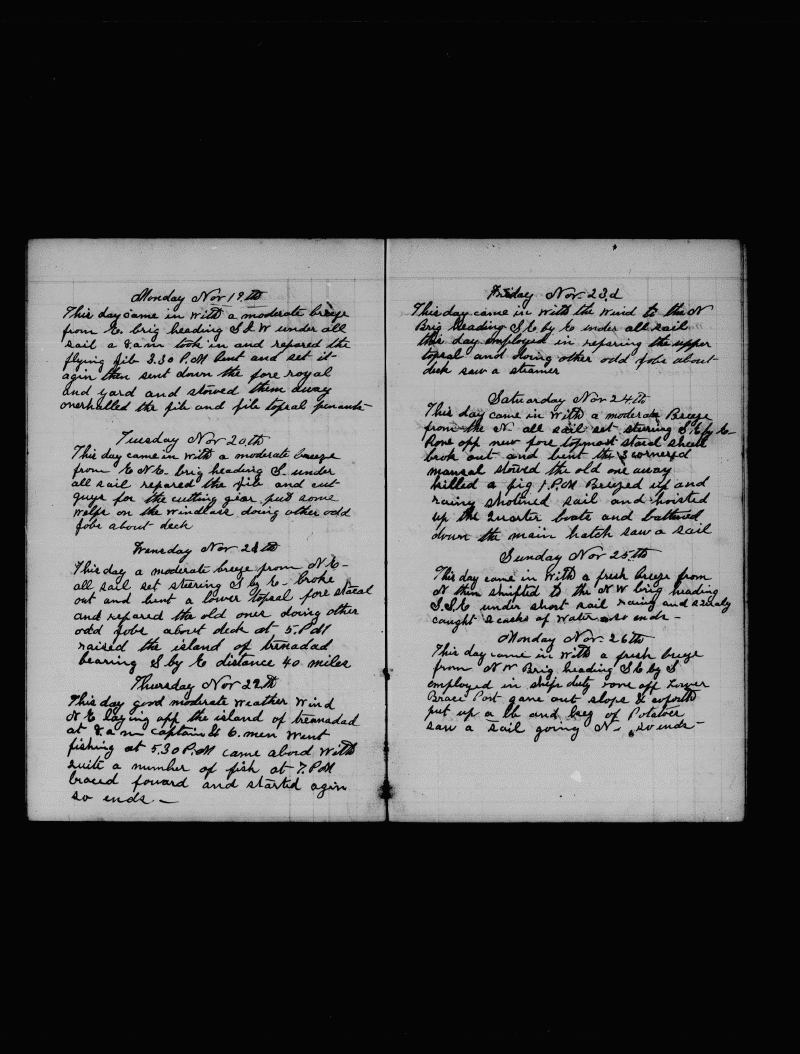 Monday Nov 19.th
This day came in with a moderate breeze
from E. brig heading S & W under all
sail a 8 am took in and repared the
flying jib 3.30 P.M bent and set it
agin then sent down the fore royal
and yard and stowed them away
overhalled the jib and jib topsal penants
Tuesday Nov 20.th
This day came in with a moderate breeze
from E N E. brig heading S. under
all sail repared the jib and cut
guys for the cutting gear put some
welps on the windlass doing other odd
jobs about deck
Wensday Nov 21th
This day a moderate breeze from N E-
all sail set steering S by E- broke
out and bent a lower topsal fore stacal
and repared the old ones doing other
odd jobs about deck at 5. P M
raised the island of trenadad
bearing S by E distance 40 miles
Thursday Nov 22.th
This day good moderate weather wind
N E laying off the island of treanadad
at 8 a m captain & 6. men went
fishing at 5.30 P.M came abord with
quite a number of fish at 7. P M
braced foward and started agin
so ends. —
Friday Nov 23,d
This day came in with the wind to the N
Brig heading S E by E under all sail
this day employed in reparing the upper
topsal and doing other odd jobs about
deck saw a steamer
Saturday Nov 24th
This day came in with a moderate Breeze
from the N. all sail set steering S, E by E-
Rove off new fore topmast starcl sheet
brok out and bent the 3 cornered
mansal stowed the old one away
killed a pig 1, P.M Breized up and
rainy shotined sail and hoisted
up the quarter boats and battened
down the main hatch saw a sail
Sunday Nov 25.th
This day came in with a fresh breeze from
N then shifted to the N W brig heading
S.S.E under short sail rainy and squaly
caught 2 casks of water so ends -
Monday Nov 26th
This day came in with a fresh breeze
from N W Brig heading S E by S
employed in ships duty rove off Lower
Brace Port gave out slops &
put up a bb and keg of Potatoes
saw a sail going N- so ends -